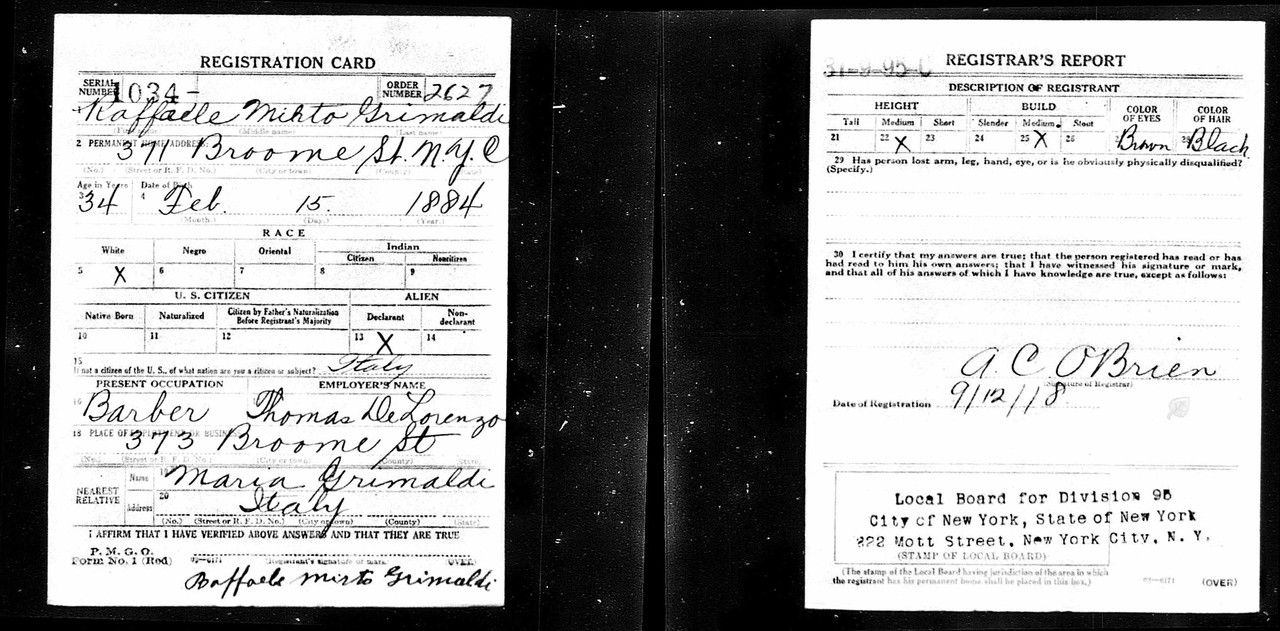 REGISTRATION CARD
SERIAL NUMBER 1034 - ORDER NUMBER 2627
Raffaele Mirto Grimaldi
(First name) (Middle name) (Last name)
2 PERMANENT HOME ADDRESS:
371 Broome St. N.Y.C
(No.) (Street or R. F. D. No.) (City or town) (County) (State)
Age in Years Date of Birth
3 34 4 Feb. 15. 1884
(Month.) (Day.) (Year.)
RACE
White Negro Oriental Indian
Citizen Noncitizen
5 X 6 7 8 9
U. S. CITIZEN ALIEN
Native Born Naturalized Citizen by Father's Naturalization Before Registrant's Majority Declarant Non-declarant
10 11 12 13 X 14
15
If not a citizen of the U. S., of what nation are you a citizen or subject? Italy
PRESENT OCCUPATION EMPLOYER'S NAME
16 Barber Thomas DeLorenzo
18 PLACE OF EMPLOYMENT OR BUSINESS
373 Broome St
(No.) (Street or R. F. D. No.) (City or town) (County) (State)
NEAREST RELATIVE Name 19 Maria Grimaldi
Address 20 Italy
(No.) (Street or R. F. D. No.) (City or town) (County) (State)
I AFFIRM THAT I HAVE VERIFIED ABOVE ANSWERS AND THAT THEY ARE TRUE
P. M. G. O.
Form No. 1 (Red) (Registrant's signature or mark.) (OVER)
Raffaele Mirto Grimaldi
31-9-95-C REGISTRAR'S REPORT
DESCRIPTION OF REGISTRANT
HEIGHT BUILD COLOR OF EYES COLOR OF HAIR
Tall Medium Short Slender Medium Stout
21 22 X 23 24 25 X 26 27 Brown 28 Black
29 Has person lost arm, leg, hand, eye, or is he obviously physically disqualified?
(Specify.)
30 I certify that my answers are true; that the person registered has read or has
had read to him his own answers; that I have witnessed his signature or mark,
and that all of his answers of which I have knowledge are true, except as follows:
A. C. O'Brien
(Signature of Registrar)
Date of Registration 9/12/18
Local Board for Division 95
City of New York, State of New York
222 Mott Street, New York City, N. Y.
(STAMP OF LOCAL BOARD)
(The stamp of the Local Board having jurisdiction of the area in which
the registrant has his permanent home shall be placed in this box.) (OVER)